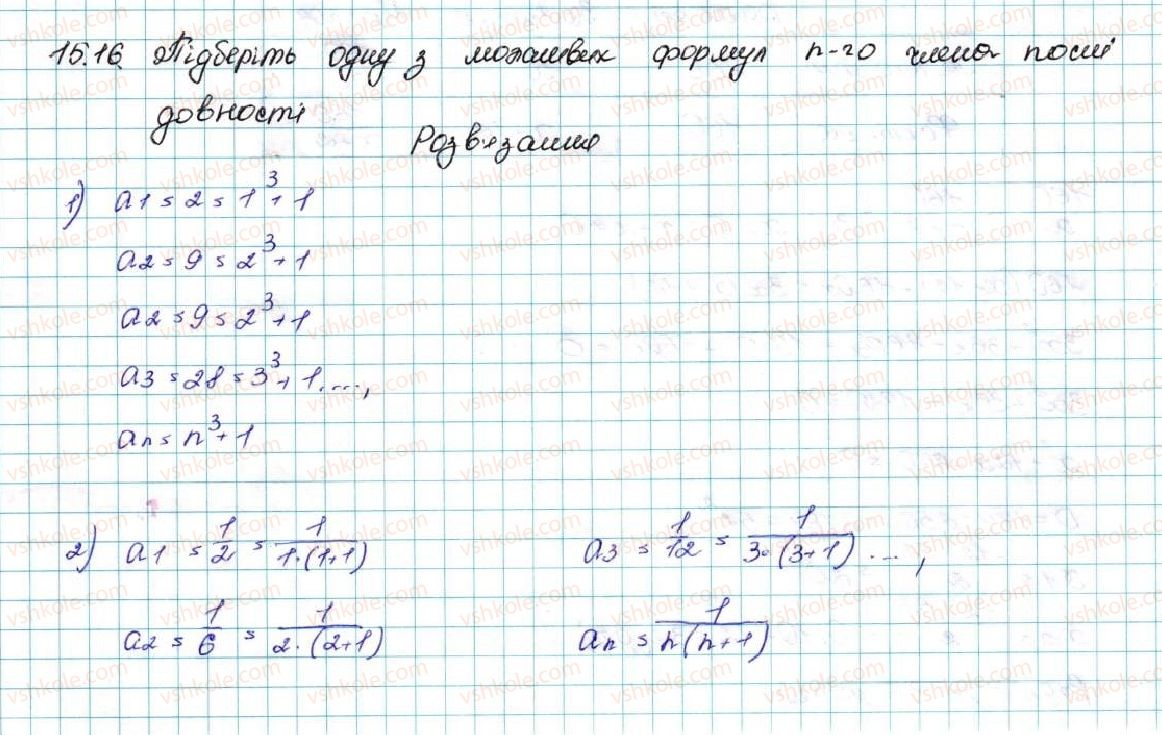 15.16 Підберіть одну з можливих формул n-го члена послі
довності
Розв'язання
1) a1 = 2 = 1³ + 1
a2 = 9 = 2³ + 1
a2 = 9 = 2³ + 1
a3 = 28 = 3³ + 1. ...,
an = n³ + 1
2) a1 = 1/2 = 1/(1·(1+1))
a2 = 1/6 = 1/(2·(2+1))
a3 = 1/12 = 1/(3·(3+1)) ...,
an = 1/(n(n+1))
vshkole.com